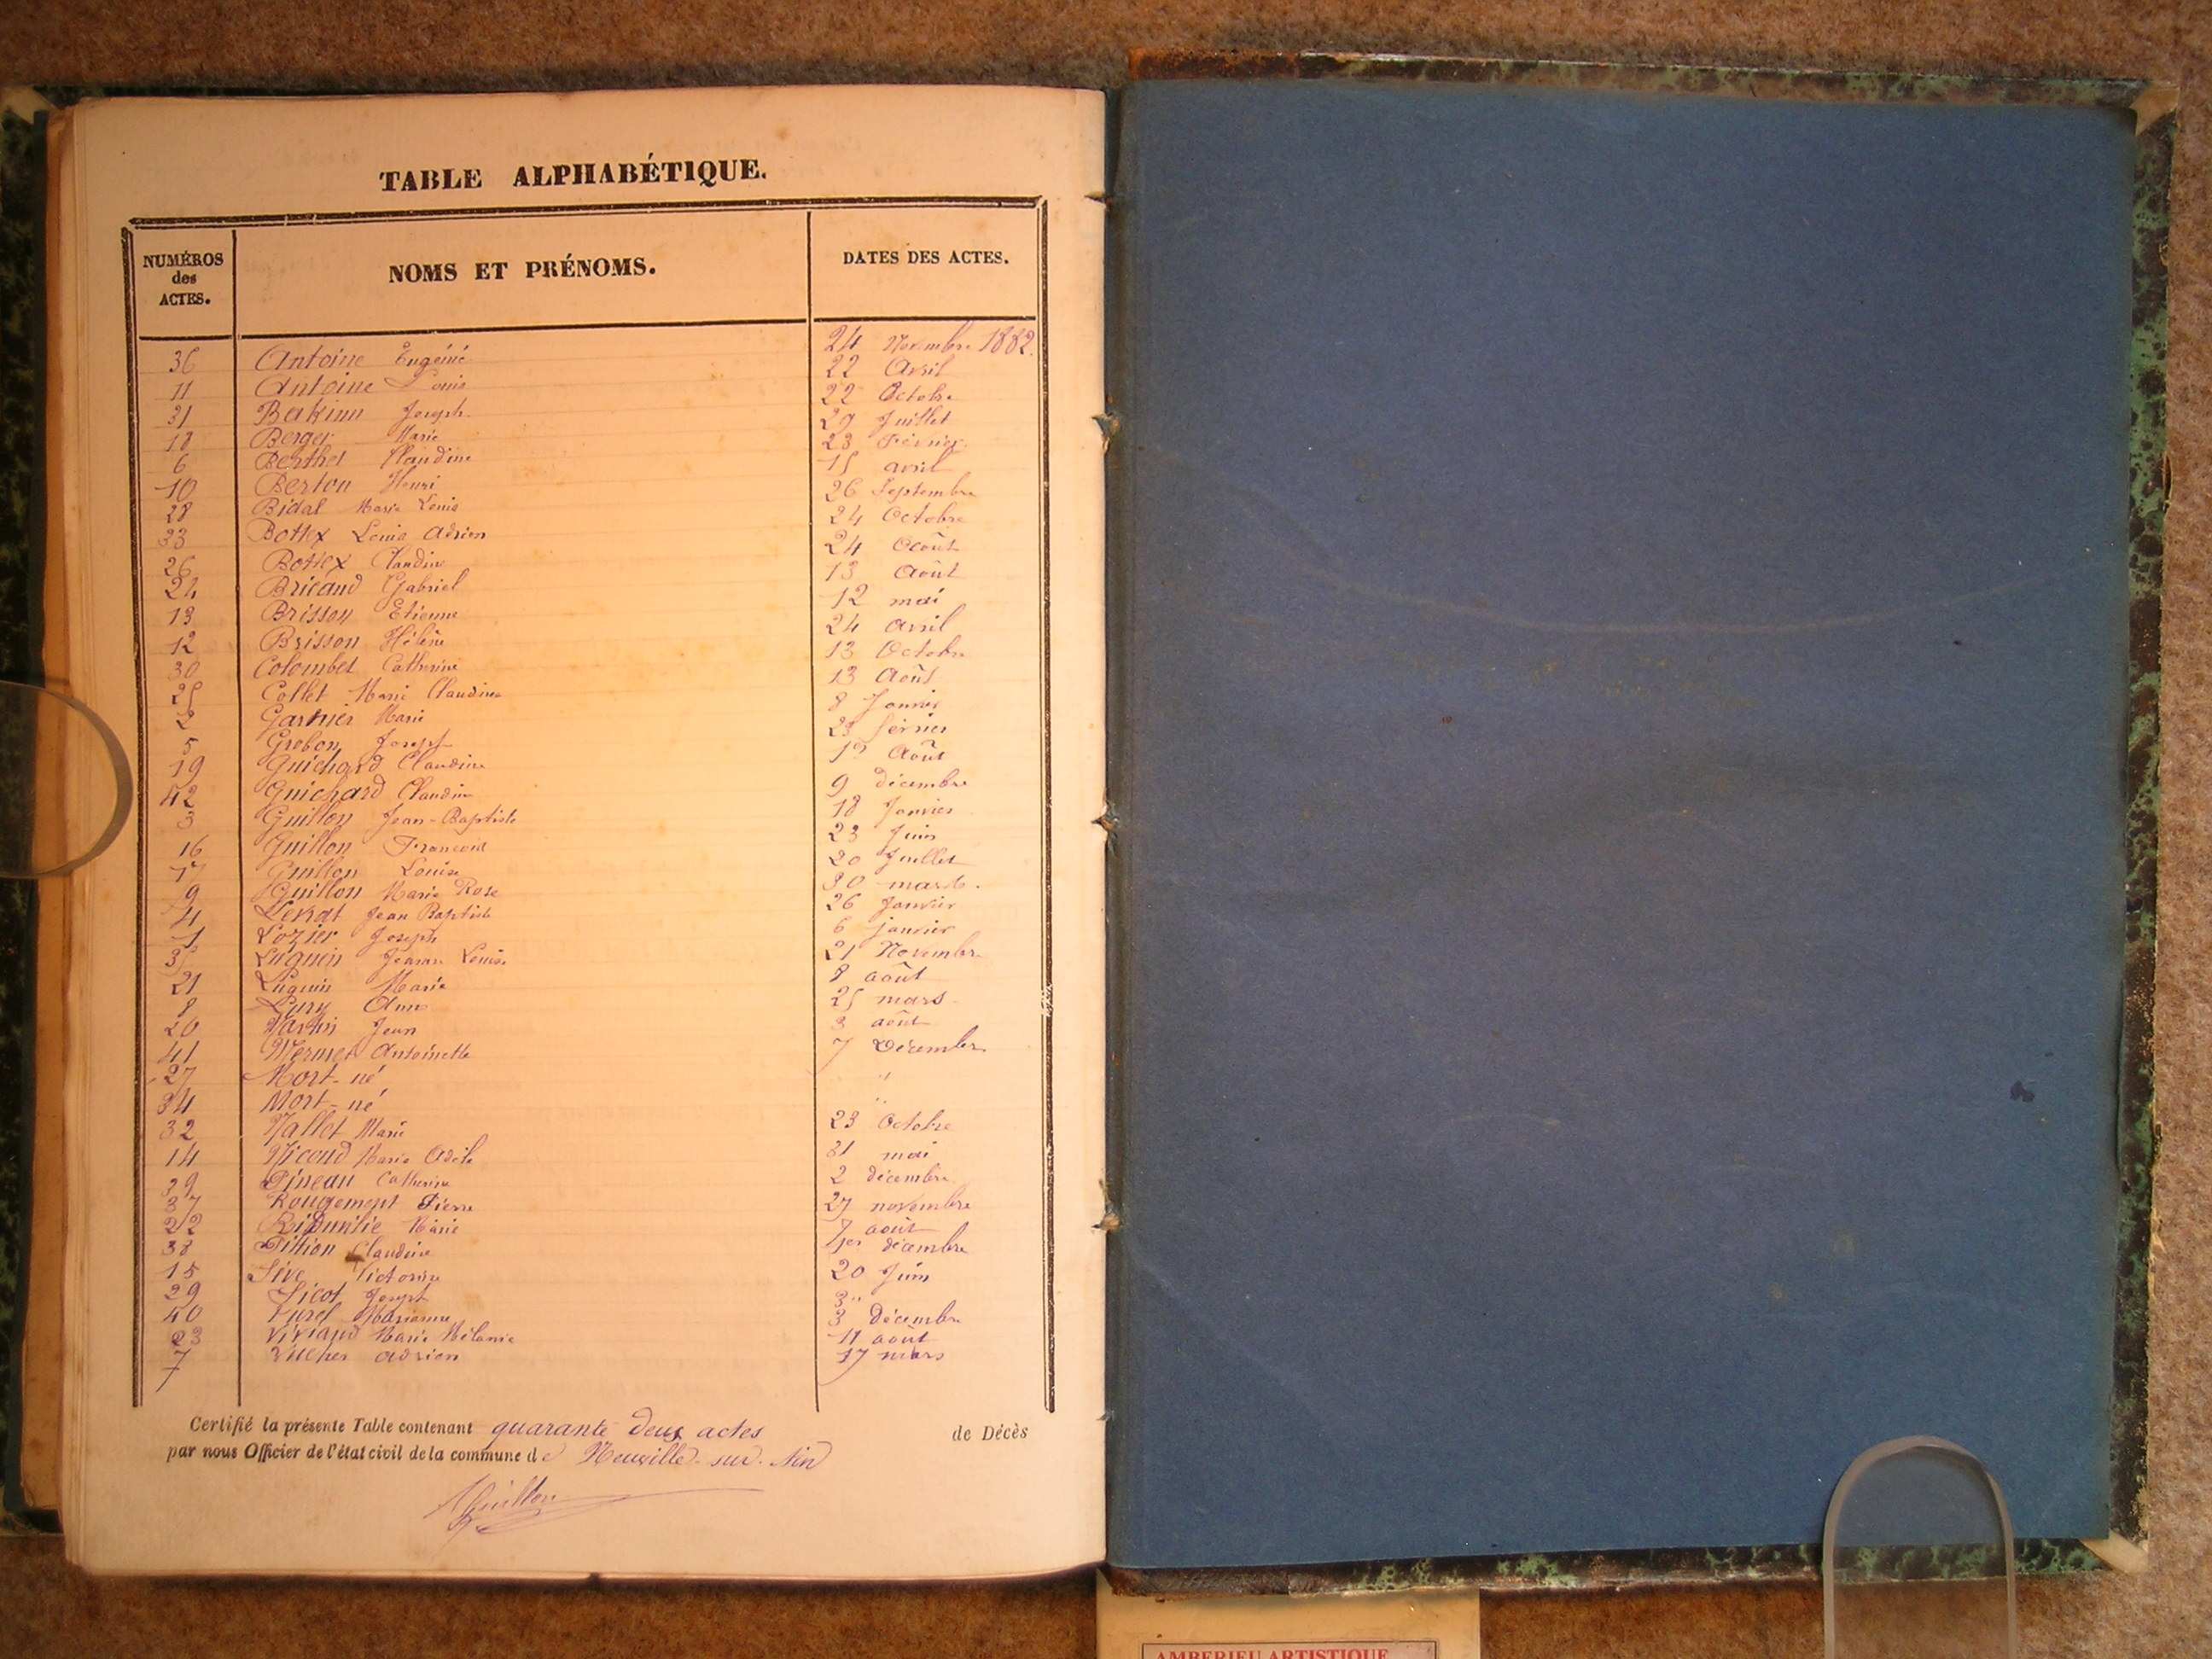 TABLE ALPHABÉTIQUE.
NUMÉROS des ACTES. NOMS ET PRÉNOMS. DATES DES ACTES.
36 Antoine Eugénie 24 Novembre 1882.
11 Antoine Louis 22 Avril
31 Joseph 22 Octobre
18 Berger Marie 29 Juillet
6 Berthet Claudine 23 Février
10 Berlou Henri 15 avril
28 Bidal Marie 26 Septembre
33 Bottex Louis Adrien 24 Octobre
26 Bottex Claudine 24 Août
24 Bricaud Gabriel 13 Août
13 Brisson Etienne 12 mai
12 Brisson Hélène 24 avril
30 Colombet Catherine 13 Octobre
25 Collet Marie Claudine 13 Août
2 Garnier Marie 8 Janvier
5 Grobon Joseph 23 février
19 Guichard Claudine Août
42 Guichard Claudine 9 décembre
3 Guillon Jean-Baptiste 18 Janvier
16 Guillon François 23 Juin
17 Guillon Louise 20 Juillet
9 Guillon Marie Rose 30 mars.
4 Levrat Jean Baptiste 26 Janvier
1 Lozier Joseph 6 janvier
35 Luguin Jeanne Louise 21 Novembre
21 Luguin Marie 8 août
8 Anne 25 mars
20 Martin Jean 3 août
41 Mermet Antoinette 7 Décembre
27 Mort-né "
34 Mort-né "
32 Nallet Marie 23 Octobre
14 Nicoud Marie Adèle 31 mai
39 Pineau Catherine 2 décembre
37 Rougemont Pierre 27 novembre
22 Marie 7 août
38 Claudine 1er décembre
15 Sive Victorine 20 Juin
29 Sicot Joseph 3 "
40 Turel Marianne 3 Décembre
23 Viviand Marie Mélanie 11 août
7 Vucher Adrien 17 mars
Certifié la présente Table contenant quarante deux actes de Décès
par nous Officier de l'état civil de la commune de Neuville-sur-Ain
Guillon
AMBERIEU ARTISTIQUE